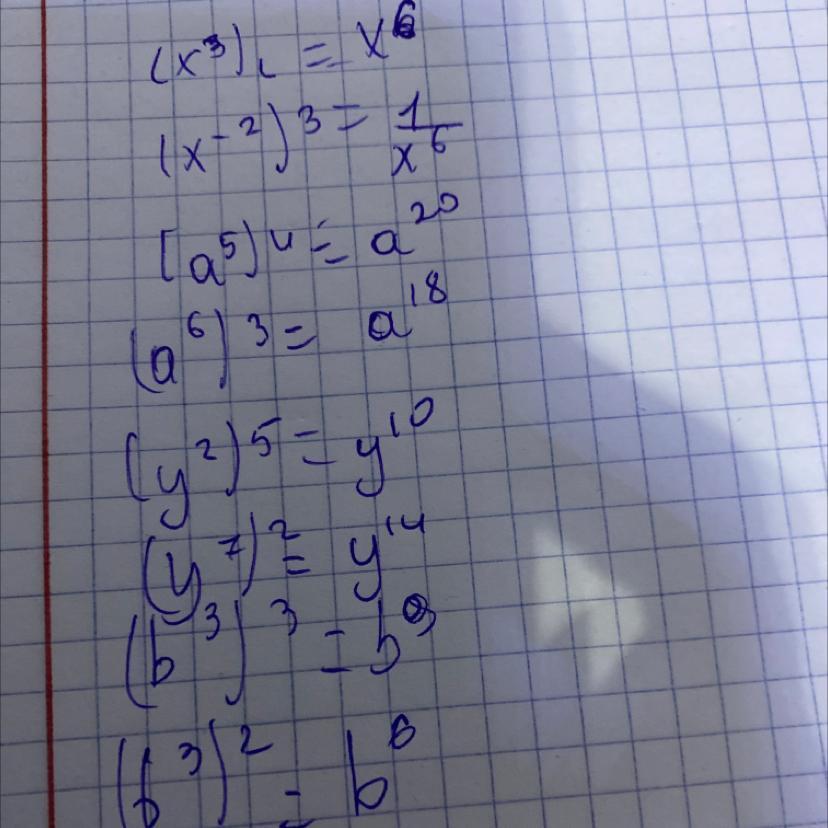 (x³)₂ = x⁶
(x⁻²)³ = 1/x⁶
[a⁵)⁴ = a²⁰
(a⁶)³ = a¹⁸
(y²)⁵ = y¹⁰
(y⁷)² = y¹⁴
(b³)³ = b⁹
(b³)² = b⁶